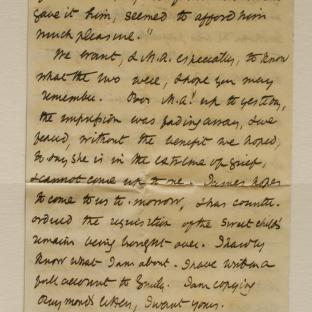 gave it him, seemed to afford him
much pleasure."
We want, & M.A. especially, to know
what the two were, I hope you may
remember. Poor M.A! up to yesterday,
the impression was fading away, I
feared, without the benefit we hoped,
to day she is in the extreme of grief,
& cannot come up to me. James hopes
to come to us to-morrow, & has counter-
ordered the requisition of the sweet child's
remains being brought over. I hardly
know what I am about. I have written a
full account to Emily. I am copying
Raymond's letter, I want yours.